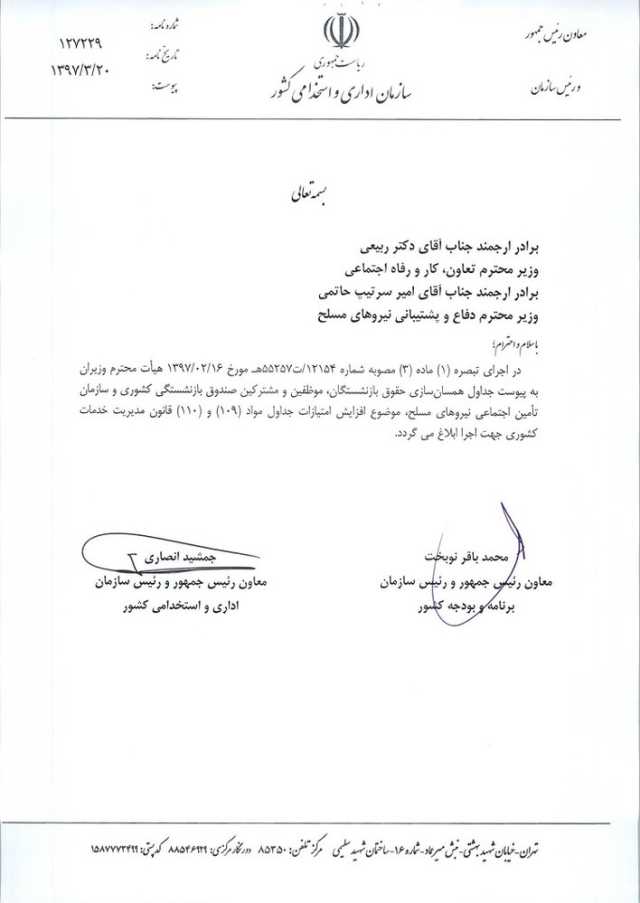 معاون رئیس جمهور
و رئیس سازمان
ریاست جمهوری
سازمان اداری و استخدامی کشور
شماره نامه:
۱۲۷۲۲۹
تاریخ نامه:
۱۳۹۷/۳/۲۰
پیوست:
بسمه تعالی
برادر ارجمند جناب آقای دکتر ربیعی
وزیر محترم تعاون، کار و رفاه اجتماعی
برادر ارجمند جناب آقای امیر سرتیپ حاتمی
وزیر محترم دفاع و پشتیبانی نیروهای مسلح
باسلام و احترام؛
در اجرای تبصره (۱) ماده (۳) مصوبه شماره ۱۲۱۵۴/ت۵۵۲۵۷هـ مورخ ۱۳۹۷/۰۲/۱۶ هیأت محترم وزیران
به پیوست جداول همسان‌سازی حقوق بازنشستگان، موظفین و مشترکین صندوق بازنشستگی کشوری و سازمان
تأمین اجتماعی نیروهای مسلح، موضوع افزایش امتیازات جداول مواد (۱۰۹) و (۱۱۰) قانون مدیریت خدمات
کشوری جهت اجرا ابلاغ می گردد.
محمد باقر نوبخت
معاون رئیس جمهور و رئیس سازمان
برنامه و بودجه کشور
جمشید انصاری
معاون رئیس جمهور و رئیس سازمان
اداری و استخدامی کشور
تهران-خیابان شهید بهشتی-نبش میرعماد-شماره ۱۶-ساختمان شهید سلیمی مرکز تلفن: ۸۵۳۵۰ دورنگار مرکزی: ۸۸۵۴۶۹۲۹ کدپستی: ۱۵۸۷۷۷۳۴۹۹